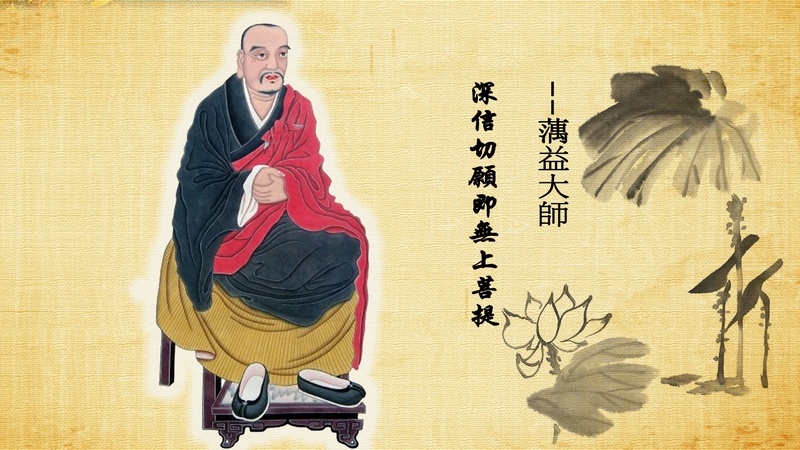 深信切願即無上菩提
--蕅益大師